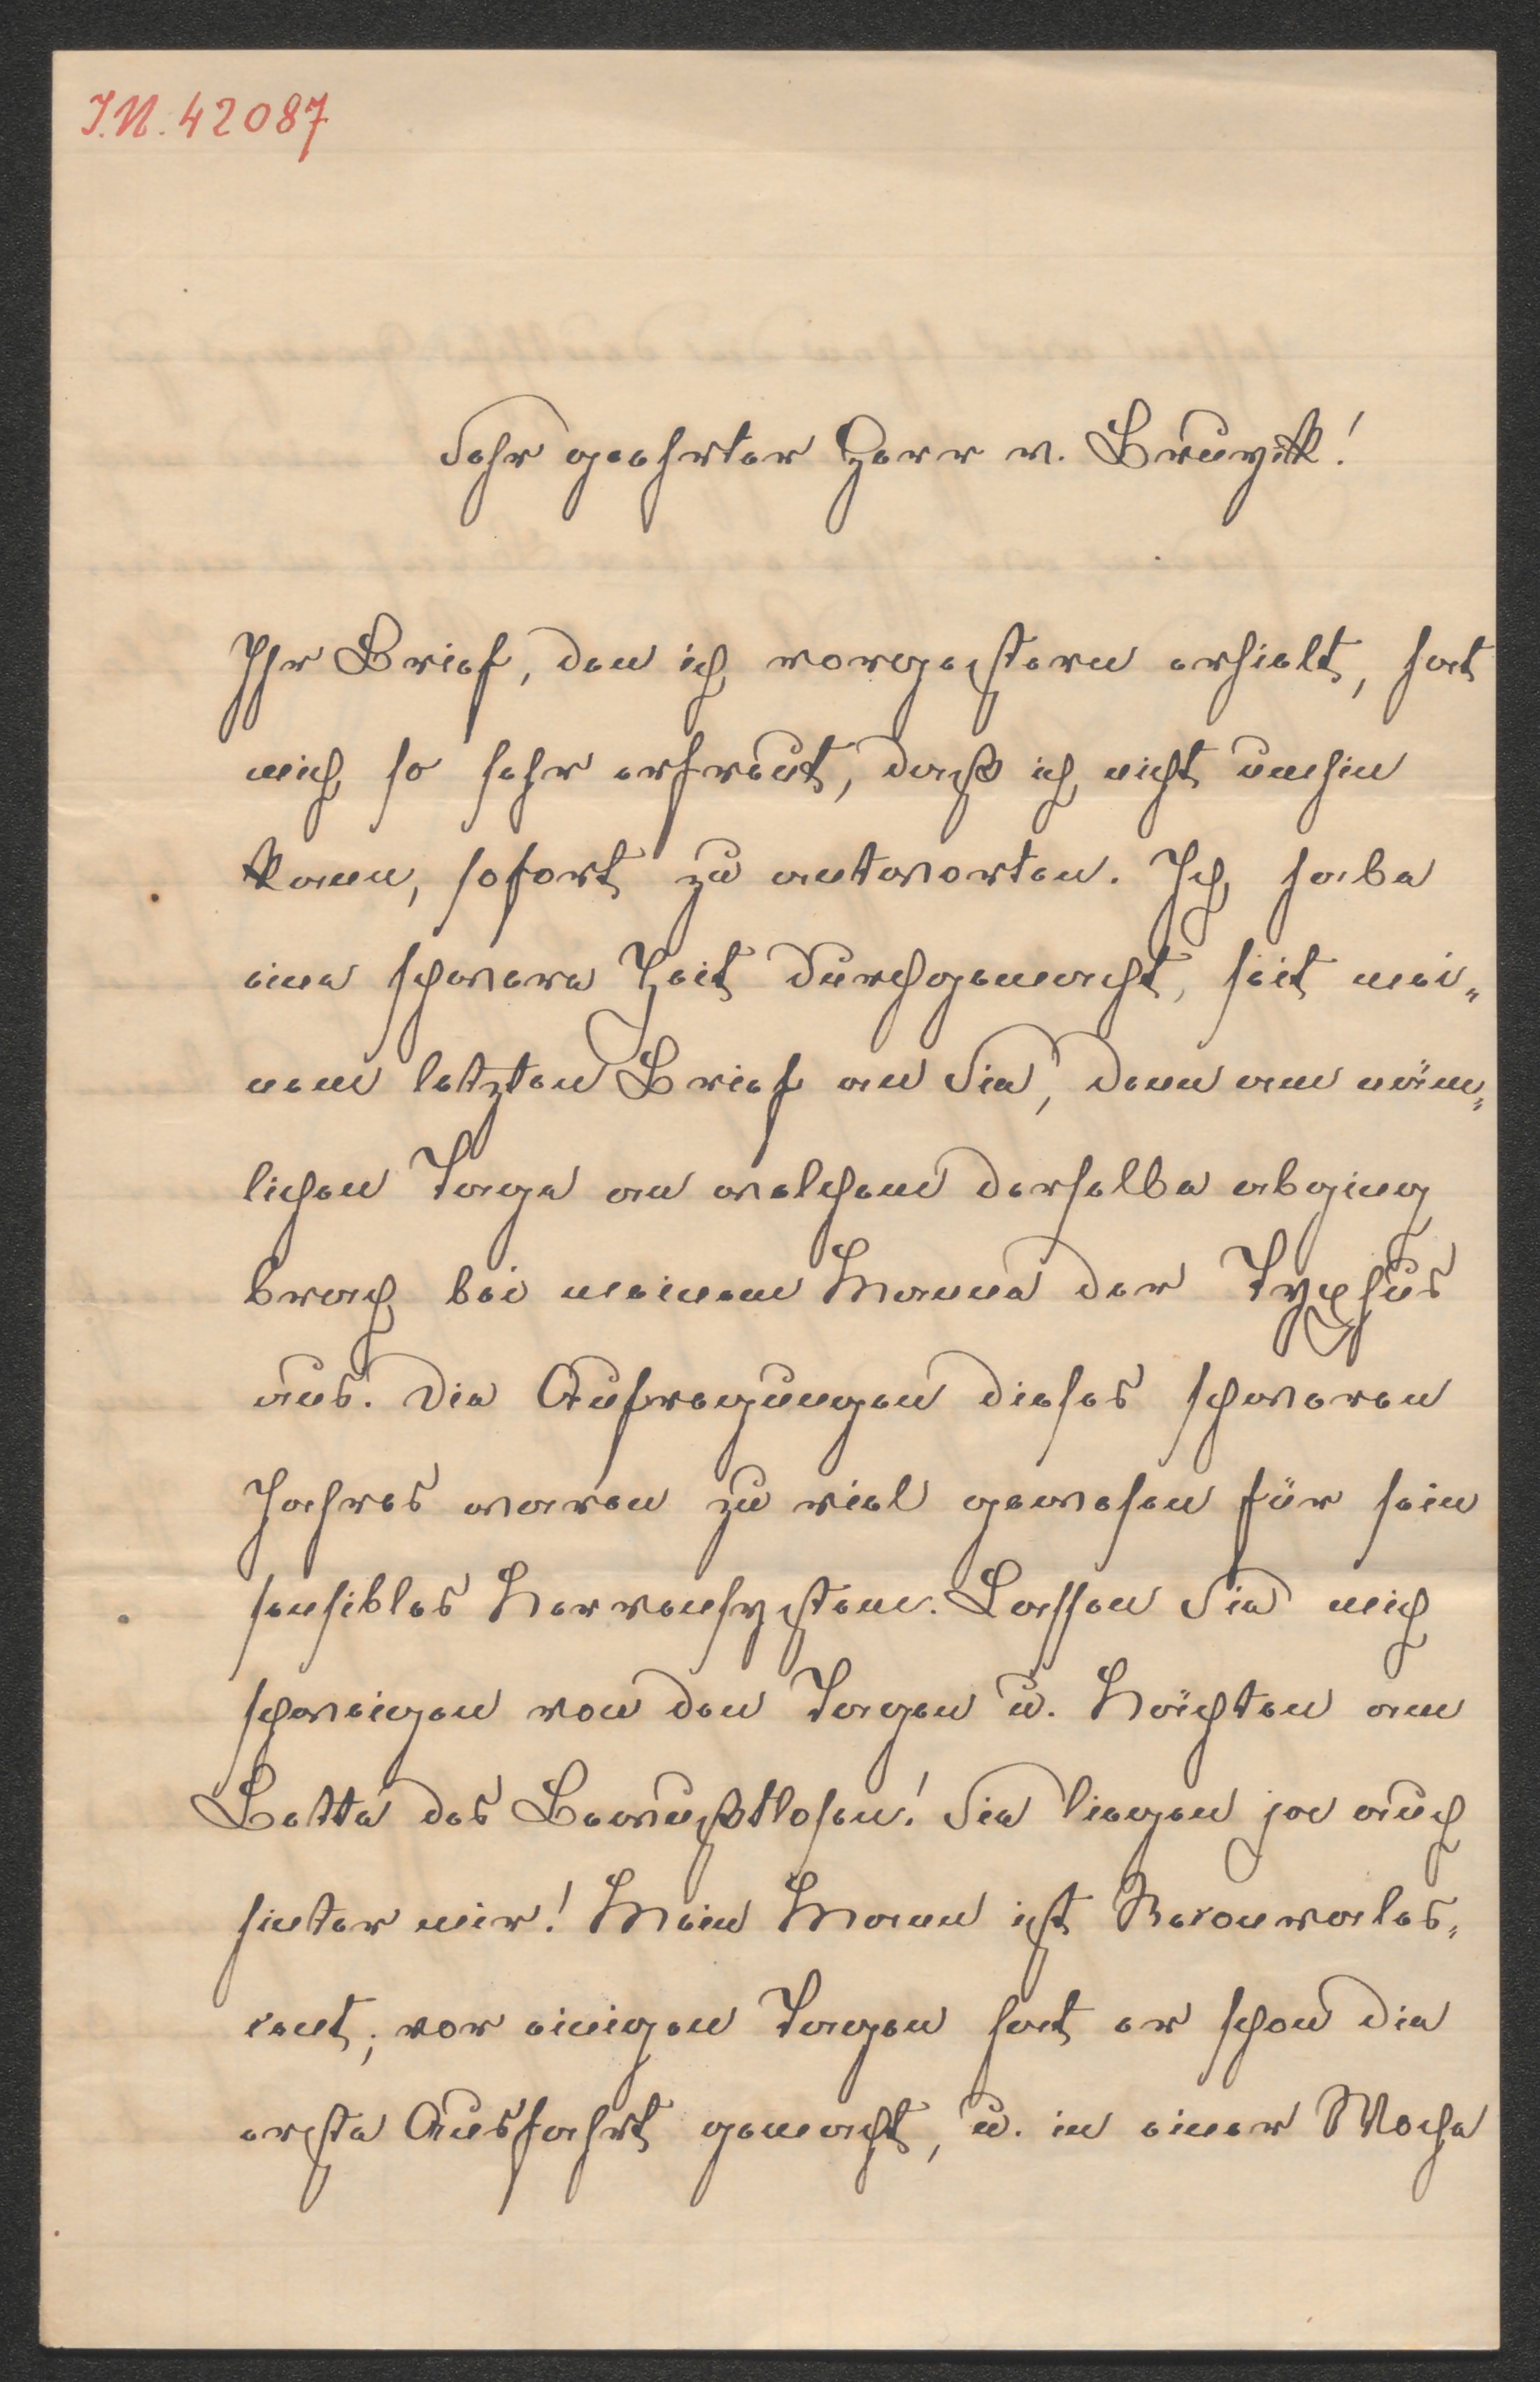 I.N. 42087
Sehr geehrter Herr v. Bruyck!
Ihr Brief, den ich vorgestern erhielt, hat
mich so sehr erfreut, daß ich nicht umhin
kann, sofort zu antworten. Ich habe
eine schwere Zeit durchgemacht, seit mei„
nem letzten Brief an Sie, denn am näm„
lichen Tage an welchem derselbe abging
brach bei meinem Manne der Typhus
aus. Die Aufregungen dieses schweren
Jahres waren zu viel gewesen für sein
sensibles Nervensystem. Lassen Sie mich
schweigen von den Tagen u. Nächten am
Bette des Bewußtlosen! Sie liegen ja auch
hinter mir! Mein Mann ist Reconvales„
cent; vor einigen Tagen hat er schon die
erste Ausfahrt gemacht, u. in einer Woche